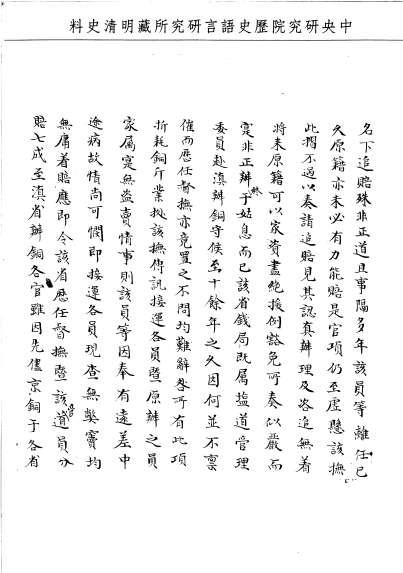 中央研究院歷史語言研究所藏明清史料
名下追賠殊非正道且事隔多年該員等離任已
久原籍亦未必有力能賠是官項仍至虛懸該撫
此摺不過以奏請追賠見其認真辦理及咨追無着
將來原籍可以家資盡絕援例豁免所奏似嚴而
寔非正辦終于姑息而已該省錢局既属塩道管理
委員赴滇辦銅守候至十餘年之久因何並不禀
催而歷任督撫亦竟置之不問均難辭咎所有此項
折耗銅斤業據該撫傳訊接運各員暨原辦之員
家属寔無盗賣情事則該員等因奉有遠差中
途病故情尚可憫即接運各員現查無弊竇均
無庸着賠應即令該省歷任督撫暨該管道員分
賠七成至滇省辦銅各官雖因先儘京銅于各省